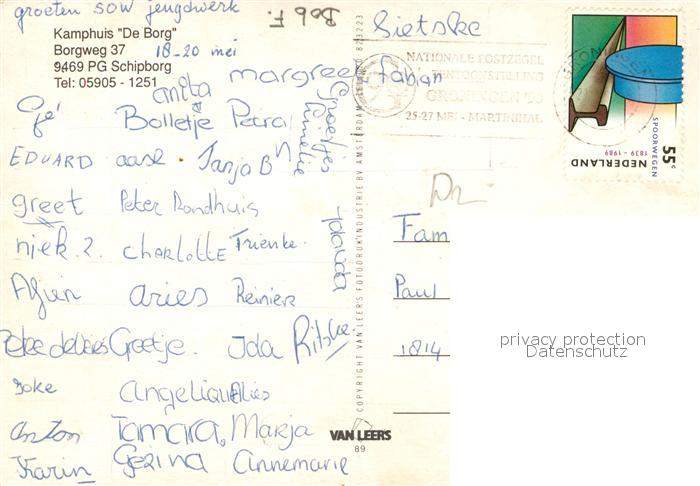 groeten sow jeugdwerk
Kamphuis "De Borg"
Borgweg 37
9469 PG Schipborg
Tel: 05905 - 1251
18-20 mei
Bob F.
Sietske
Fabian
margreet
anita
Gé Bolletje Petra
Groetjes
Annelie
EDUARD aase Tanja B
greet Peter Rondhuis
niek 2. CHARLOTTE Trienke
Jolanda
Afien aries Reinier
Geetje. Ida Ritske
Joke Angelique Alies
Anton Tamara, Marja
Karin Gezina Annemarie
COPYRIGHT VAN LEER'S FOTODRUKINDUSTRIE BV AMSTERDAM
823223
VAN LEER'S
89
NATIONALE POSTZEGEL
TENTOONSTELLING
GRONINGEN
25-27 MEI - MARTINIHAL
NEDERLAND
55c
SPOORWEGEN
1839 - 1989
Fam
Paul
1814
privacy protection
Datenschutz